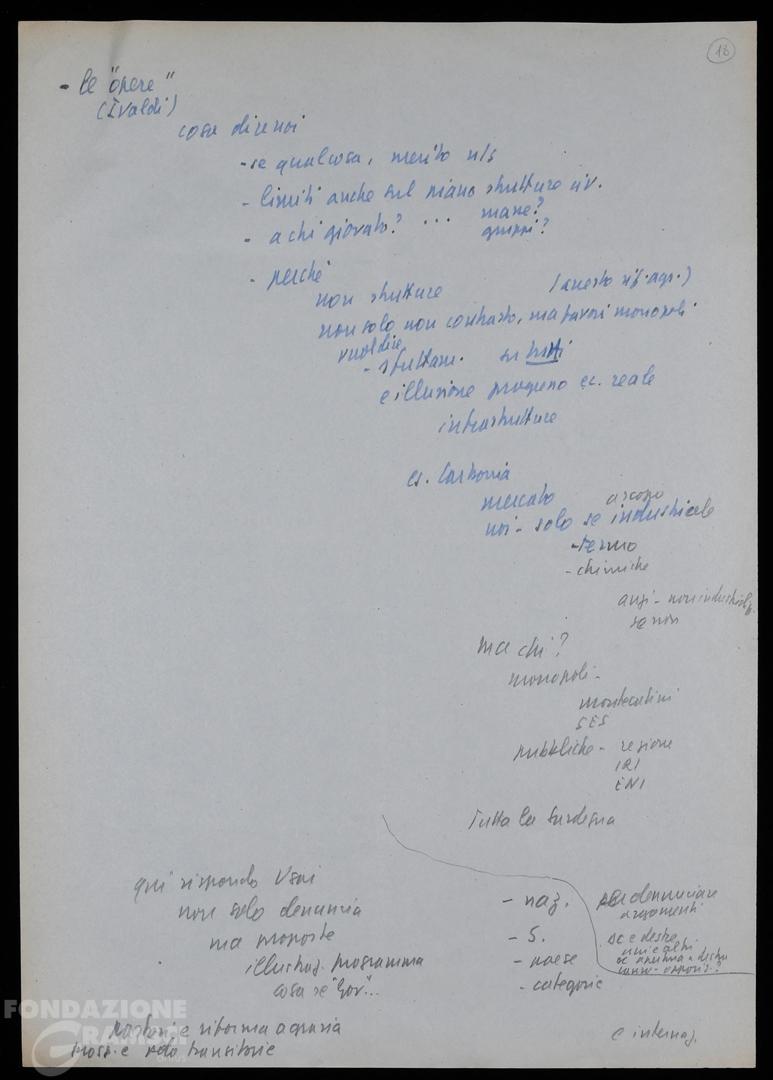 18
- le "opere"
(Ivaldi)
cosa dire noi
- se qualcosa, merito n/s
- limiti anche sul piano strutture civ.
- a chi giovato? ... masse?
gruppi?
- perché
non strutture (questo rif. agr.)
non solo non contrasto, ma favori monopoli
vuol dire
- sfruttam. su tutti
e illusione progresso ec. reale
infrastrutture
es. Carbonia
mercato a scopo
noi - solo se industriale
- termo
- chimiche
anzi - non industrializ.
se non
ma chi?
monopoli -
montecatini
SES
pubbliche - regione
IRI
ENI
Tutta la Sardegna
qui rispondo Usai
non solo denuncia
ma proposte
illustraz. programma
cosa se "gov"...
- naz. denunciare
argomenti
- S. se e destre
- paese
- categorie
riforma agraria
solo transitorie
e internaz.
FONDAZIONE
GRAMSCI